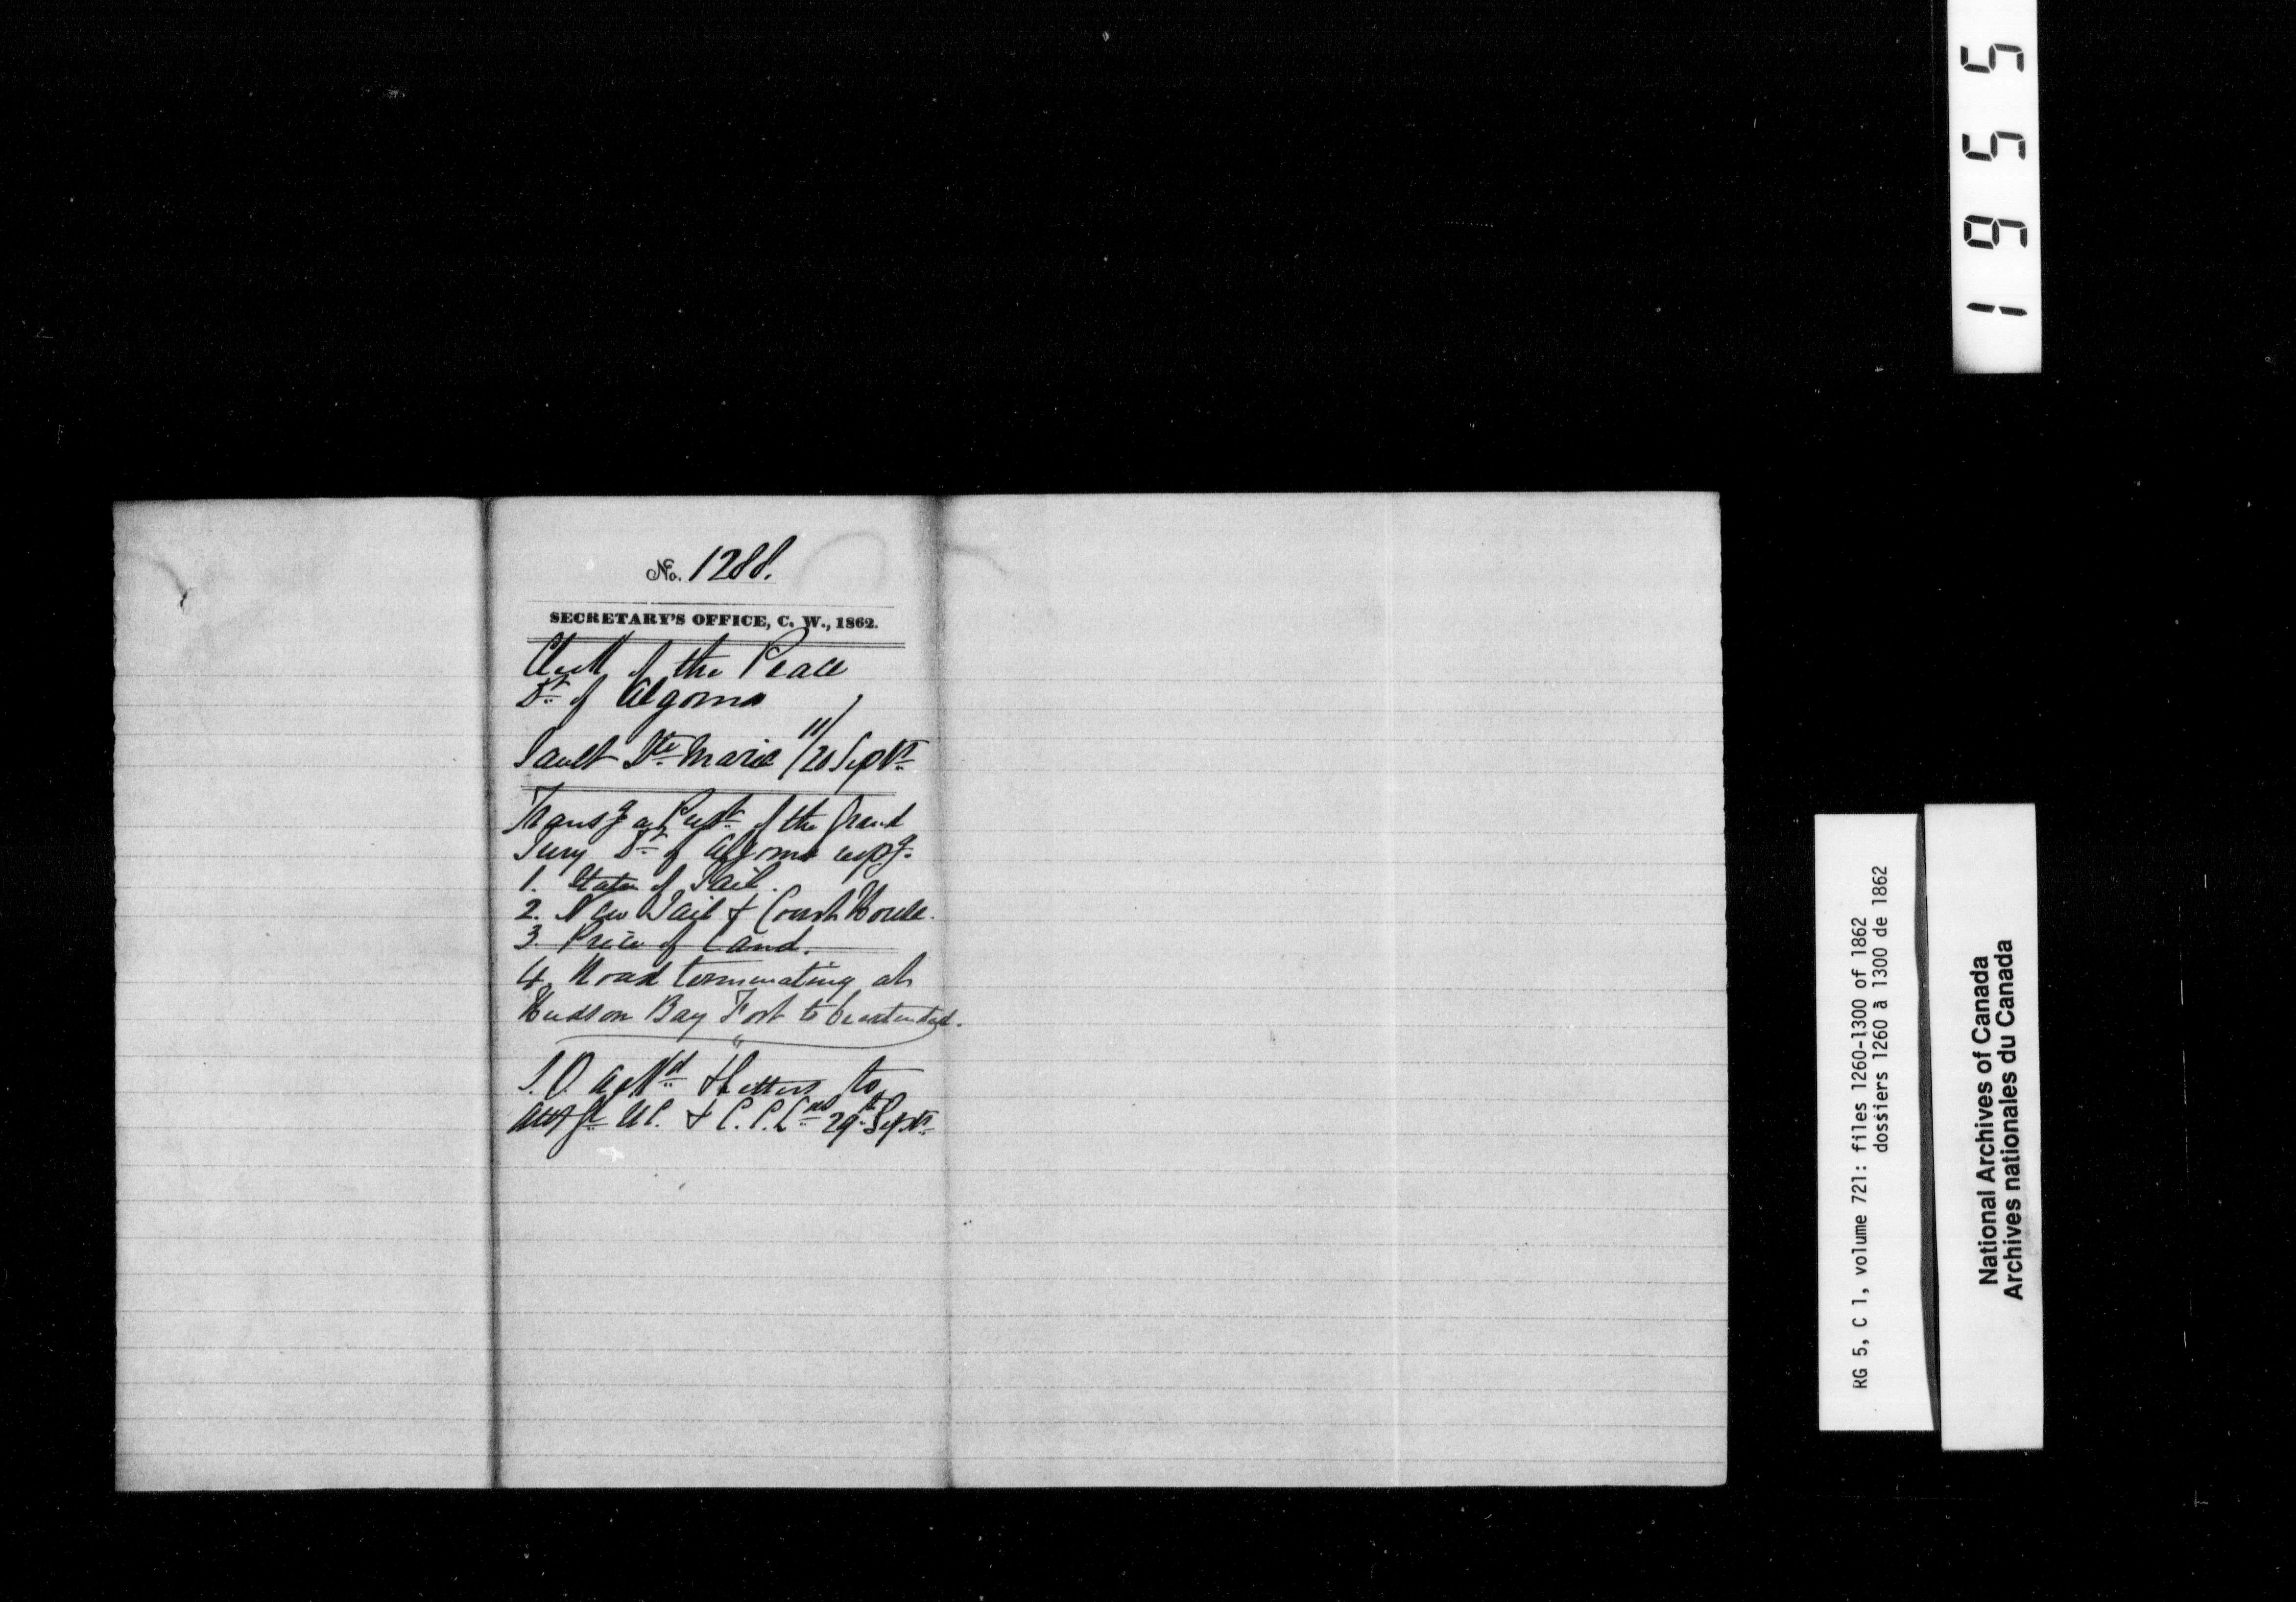 1955
No. 1288.
SECRETARY'S OFFICE, C. W., 1862.
Clerk of the Peace
Dt. of Algoma
11/
Sault Ste. Marie /20 Sept.
Transg a Prest. of the Grand
Jury Dt. of Algoma respg.
1. State of Jail.
2. New Jail & Court House.
3. Price of Land.
4. Road terminating at
Hudson Bay Fort to be extended.
Ackd & Letters to
Atty Gl. U.C. & C. C. L. 29th Sept.
RG 5, C 1, volume 721: files 1260-1300 of 1862
dossiers 1260 à 1300 de 1862
National Archives of Canada
Archives nationales du Canada